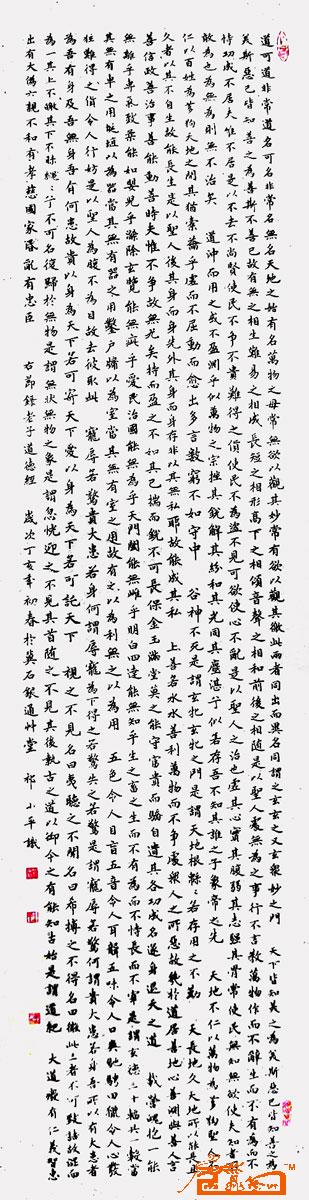 道可道非常道名可名非常名無名天地之始有名萬物之母常無欲以觀其妙常有欲以觀其徼此兩者同出而異名同謂之玄玄之又玄眾妙之門 天下皆知美之為美斯惡已皆知善之為
美斯惡已皆知善之為善斯不善已故有無之相生難易之相成長短之相形高下之相傾音聲之相和前後之相隨是以聖人處無為之事行不言教萬物作而不辭生而不有為而不
恃功成不居夫惟不居是以不去不尚賢使民不爭不貴難得之貨使民不為盜不見可欲使心不亂是以聖人之治也虛其心實其腹弱其志強其骨常使民無知無欲使夫知者不
敢為也為無為則無不治矣 道沖而用之或不盈淵乎似萬物之宗挫其銳解其紛和其光同其塵湛兮似若存吾不知其誰之子象帝之先 天地不仁以萬物為芻狗聖人不
仁以百姓為芻狗天地之間其猶橐籥乎虛而不屈動而愈出多言數窮不如守中 谷神不死是謂玄牝玄牝之門是謂天地根綿綿若存用之不勤 天長地久天地所以能長且
久者以其不自生故能長生是以聖人後其身而身先外其身而身存非以其無私耶故能成其私 上善若水水善利萬物而不爭處眾人之所惡故幾於道居善地心善淵與善人言
善信政善治事善能動善時夫惟不爭故無尤矣持而盈之不如其已揣而銳不可長保金玉滿堂莫之能守富貴而驕自遺其咎功成名遂身退天之道 載營魄抱一能
無離乎專氣致柔能如嬰兒乎滌除玄覽能無疵乎愛民治國能無為乎天門開闔能無雌乎明白四達能無知乎生之畜之生而不有為而不恃長而不宰是謂玄德三十輻共一轂當
其無有車之用埏埴以為器當其無有器之用鑿戶牖以為室當其無有室之用故有之以為利無之以為用 五色令人目盲五音令人耳聾五味令人口爽馳騁田獵令人心發
狂難得之貨令人行妨是以聖人為腹不為目故去彼取此 寵辱若驚貴大患若身何謂寵辱寵為下得之若驚失之若驚是謂寵辱若驚何謂貴大患若身吾所以有大患者
為吾有身及吾無身吾有何患故貴以身為天下若可寄天下愛以身為天下若可託天下 視之不見名曰夷聽之不聞名曰希搏之不得名曰微此三者不可致詰故混而
為一其上不皦其下不昧繩繩兮不可名復歸於無物是謂無狀無物之象是謂忽恍迎之不見其首隨之不見其後執古之道以御今之有能知古始是謂道紀 大道廢有仁義智慧
出有大偽六親不和有孝慈國家昏亂有忠臣 右節錄老子道德經 歲次丁亥年初春於石銀通艸堂 祁小平識